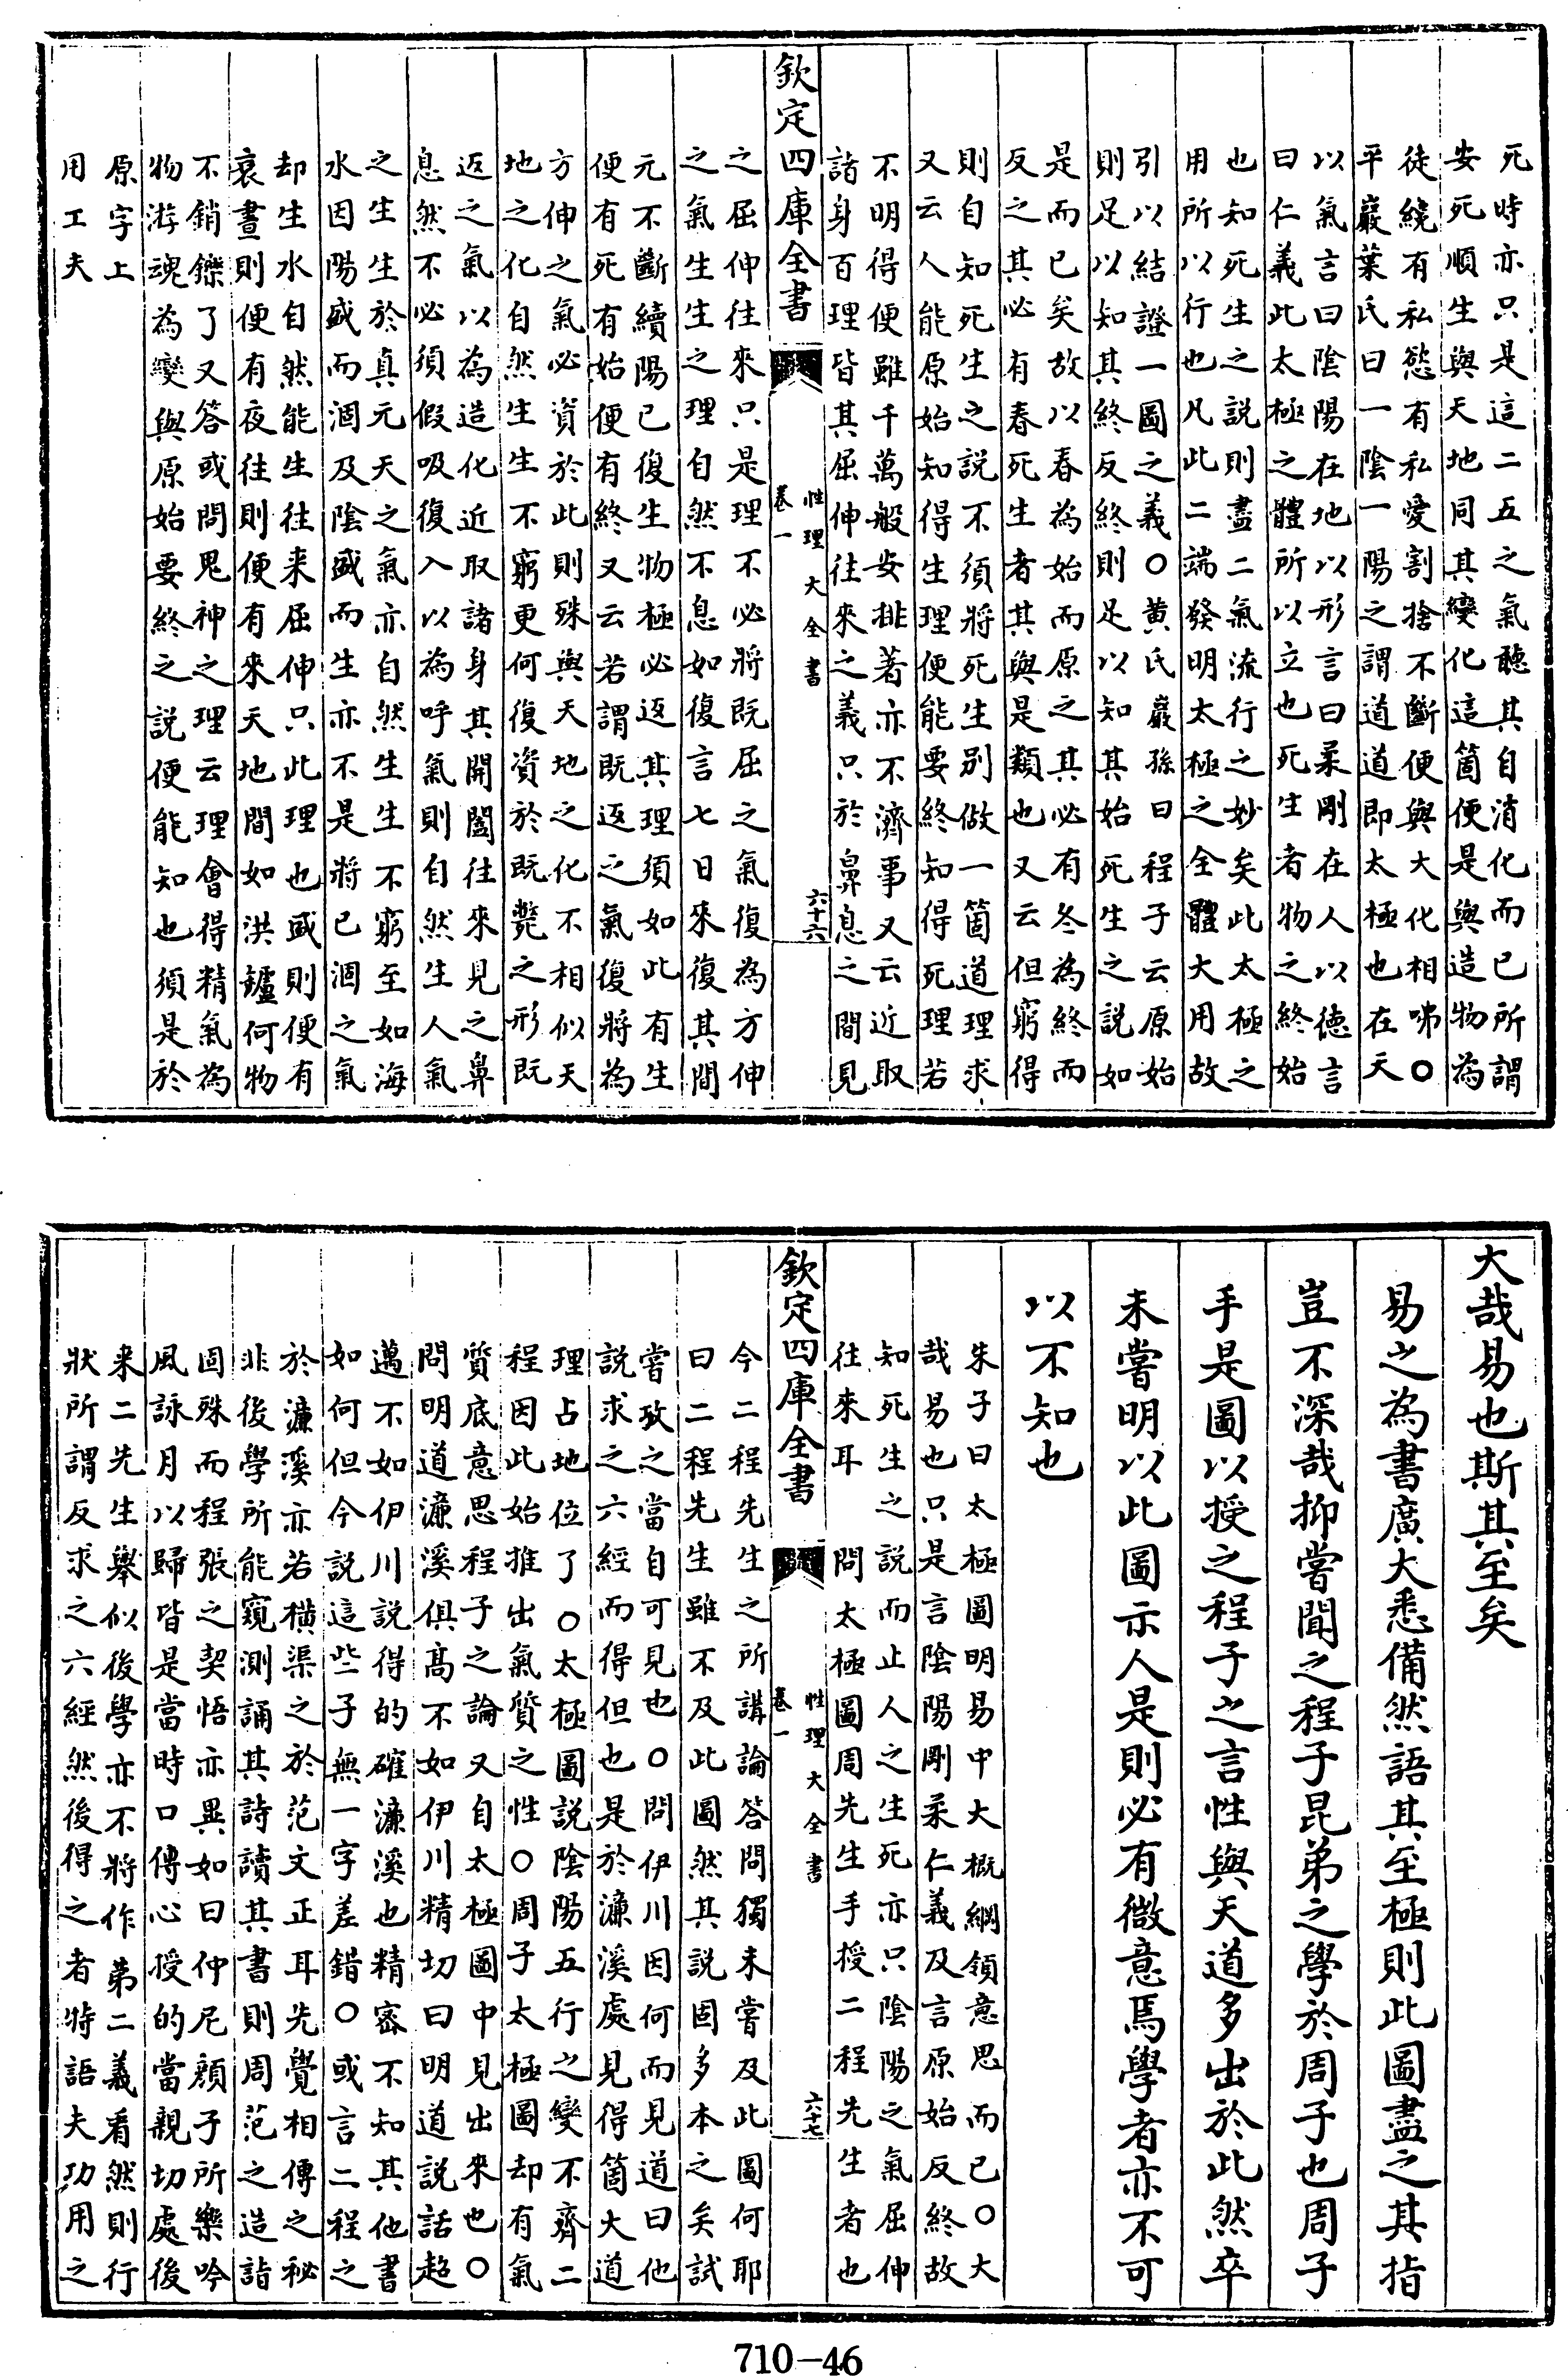 死時亦只是這二五之氣聽其自消化而已所謂
安死順生與天地同其變化這箇便是與造物為
徒纔有私慾有私愛割捨不斷便與大化相咈○
平巖葉氏曰一陰一陽之謂道道即太極也在天
以氣言曰陰陽在地以形言曰柔剛在人以德言
曰仁義此太極之體所以立也死生者物之終始
也知死生之説則盡二氣流行之妙矣此太極之
用所以行也凡此二端發明太極之全體大用故
引以結證一圖之義○黄氏巖孫曰程子云原始
則足以知其終反終則足以知其始死生之説如
是而已矣故以春為始而原之其必有冬為終而
反之其必有春死生者其與是類也又云但窮得
則自知死生之説不須將死生別做一箇道理求
又云人能原始知得生理便能要終知得死理若
不明得便雖千萬般安排著亦不濟事又云近取
諸身百理皆其屈伸往來之義只於鼻息之間見
欽定四庫全書
性理大全書
卷一
六十六
之屈伸往來只是理不必將既屈之氣復為方伸
之氣生生之理自然不息如復言七日來復其間
元不斷續陽已復生物極必返其理須如此有生
便有死有始便有終又云若謂既返之氣復將為
方伸之氣必資於此則殊與天地之化不相似天
地之化自然生生不窮更何復資於既斃之形既
返之氣以為造化近取諸身其開闔往來見之鼻
息然不必須假吸復入以為呼氣則自然生人氣
之生生於真元天之氣亦自然生生不窮至如海
水因陽盛而涸及陰盛而生亦不是將已涸之氣
却生水自然能生往来屈伸只此理也盛則便有
衰晝則便有夜往則便有來天地間如洪鑪何物
不銷鑠了又答或問鬼神之理云理會得精氣為
物游魂為變與原始要終之説便能知也須是於
原字上
用工夫
大哉易也斯其至矣
易之為書廣大悉備然語其至極則此圖盡之其指
豈不深哉抑嘗聞之程子昆弟之學於周子也周子
手是圖以授之程子之言性與天道多出於此然卒
未嘗明以此圖示人是則必有微意焉學者亦不可
以不知也
朱子曰太極圖明易中大概綱領意思而已○大
哉易也只是言陰陽剛柔仁義及言原始反終故
知死生之説而止人之生死亦只陰陽之氣屈伸
往來耳　問太極圖周先生手授二程先生者也
欽定四庫全書
性理大全書
卷一
六十七
今二程先生之所講論答問獨未嘗及此圖何耶
曰二程先生雖不及此圖然其説固多本之矣試
嘗攷之當自可見也○問伊川因何而見道曰他
説求之六經而得但也是於濂溪處見得箇大道
理占地位了○太極圖説陰陽五行之變不齊二
程因此始推出氣質之性○周子太極圖却有氣
質底意思程子之論又自太極圖中見出來也○
問明道濂溪俱高不如伊川精切曰明道説話超
邁不如伊川説得的確濂溪也精密不知其他書
如何但今説這些子無一字差錯○或言二程之
於濂溪亦若横渠之於范文正耳先覺相傳之秘
非後學所能窺測誦其詩讀其書則周范之造詣
固殊而程張之契悟亦異如曰仲尼顔子所樂吟
風詠月以歸皆是當時口傳心授的當親切處後
来二先生舉似後學亦不將作第二義看然則行
狀所謂反求之六經然後得之者特語夫功用之
710-46